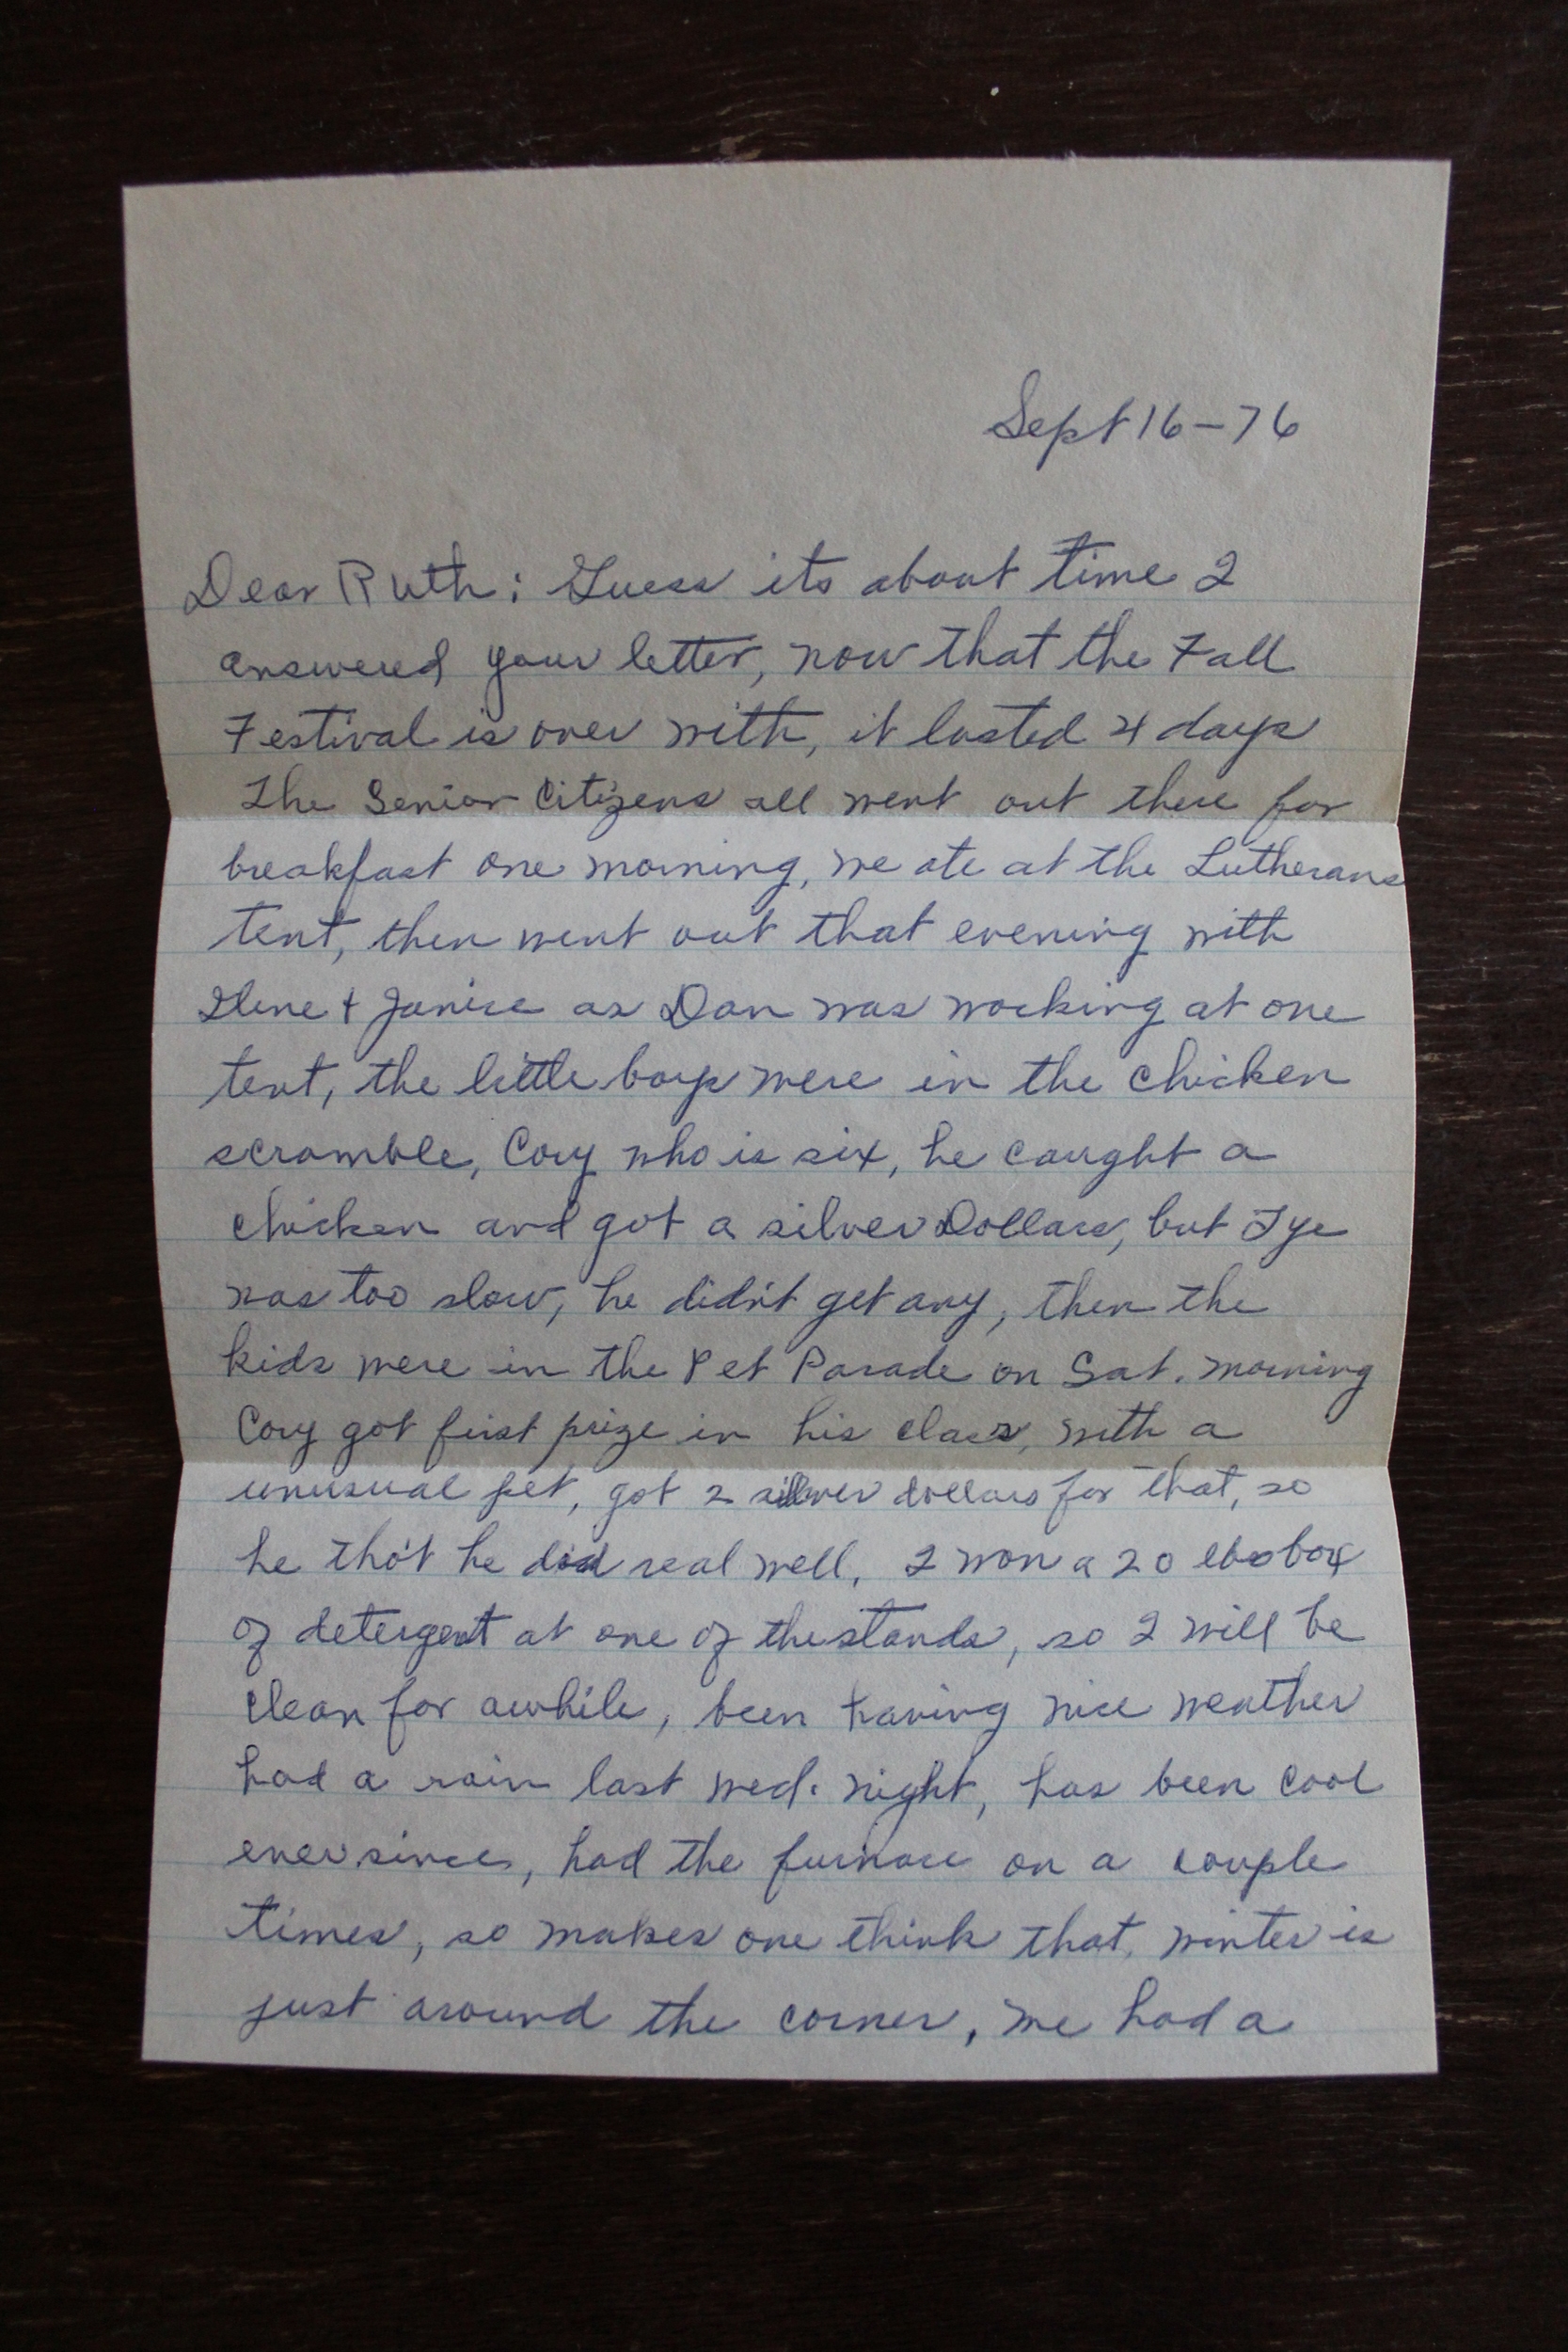 Sept 16 - 76
Dear Ruth: Guess its about time I
answered your letter, now that the Fall
Festival is over with, it lasted 4 days
The Senior Citizens all went out there for
breakfast one morning, we ate at the Lutherans
tent, then went out that evening with
Ilene + Janice as Dan was working at one
tent, the little boys were in the chicken
scramble, Cory who is six, he caught a
chicken and got a silver Dollars, but Tye
was too slow, he did'nt get any, then the
kids were in the Pet Parade on Sat. morning
Cory got first prize in his class, with a
unusual pet, got 2 silver dollars for that, so
he tho't he did real well, I won a 20 lbs box
of detergent at one of the stands, so I will be
clean for awhile, been having nice weather
had a rain last wed. night, has been cool
ever since, had the furnace on a couple
times, so makes one think that, winter is
just around the corner, we had a